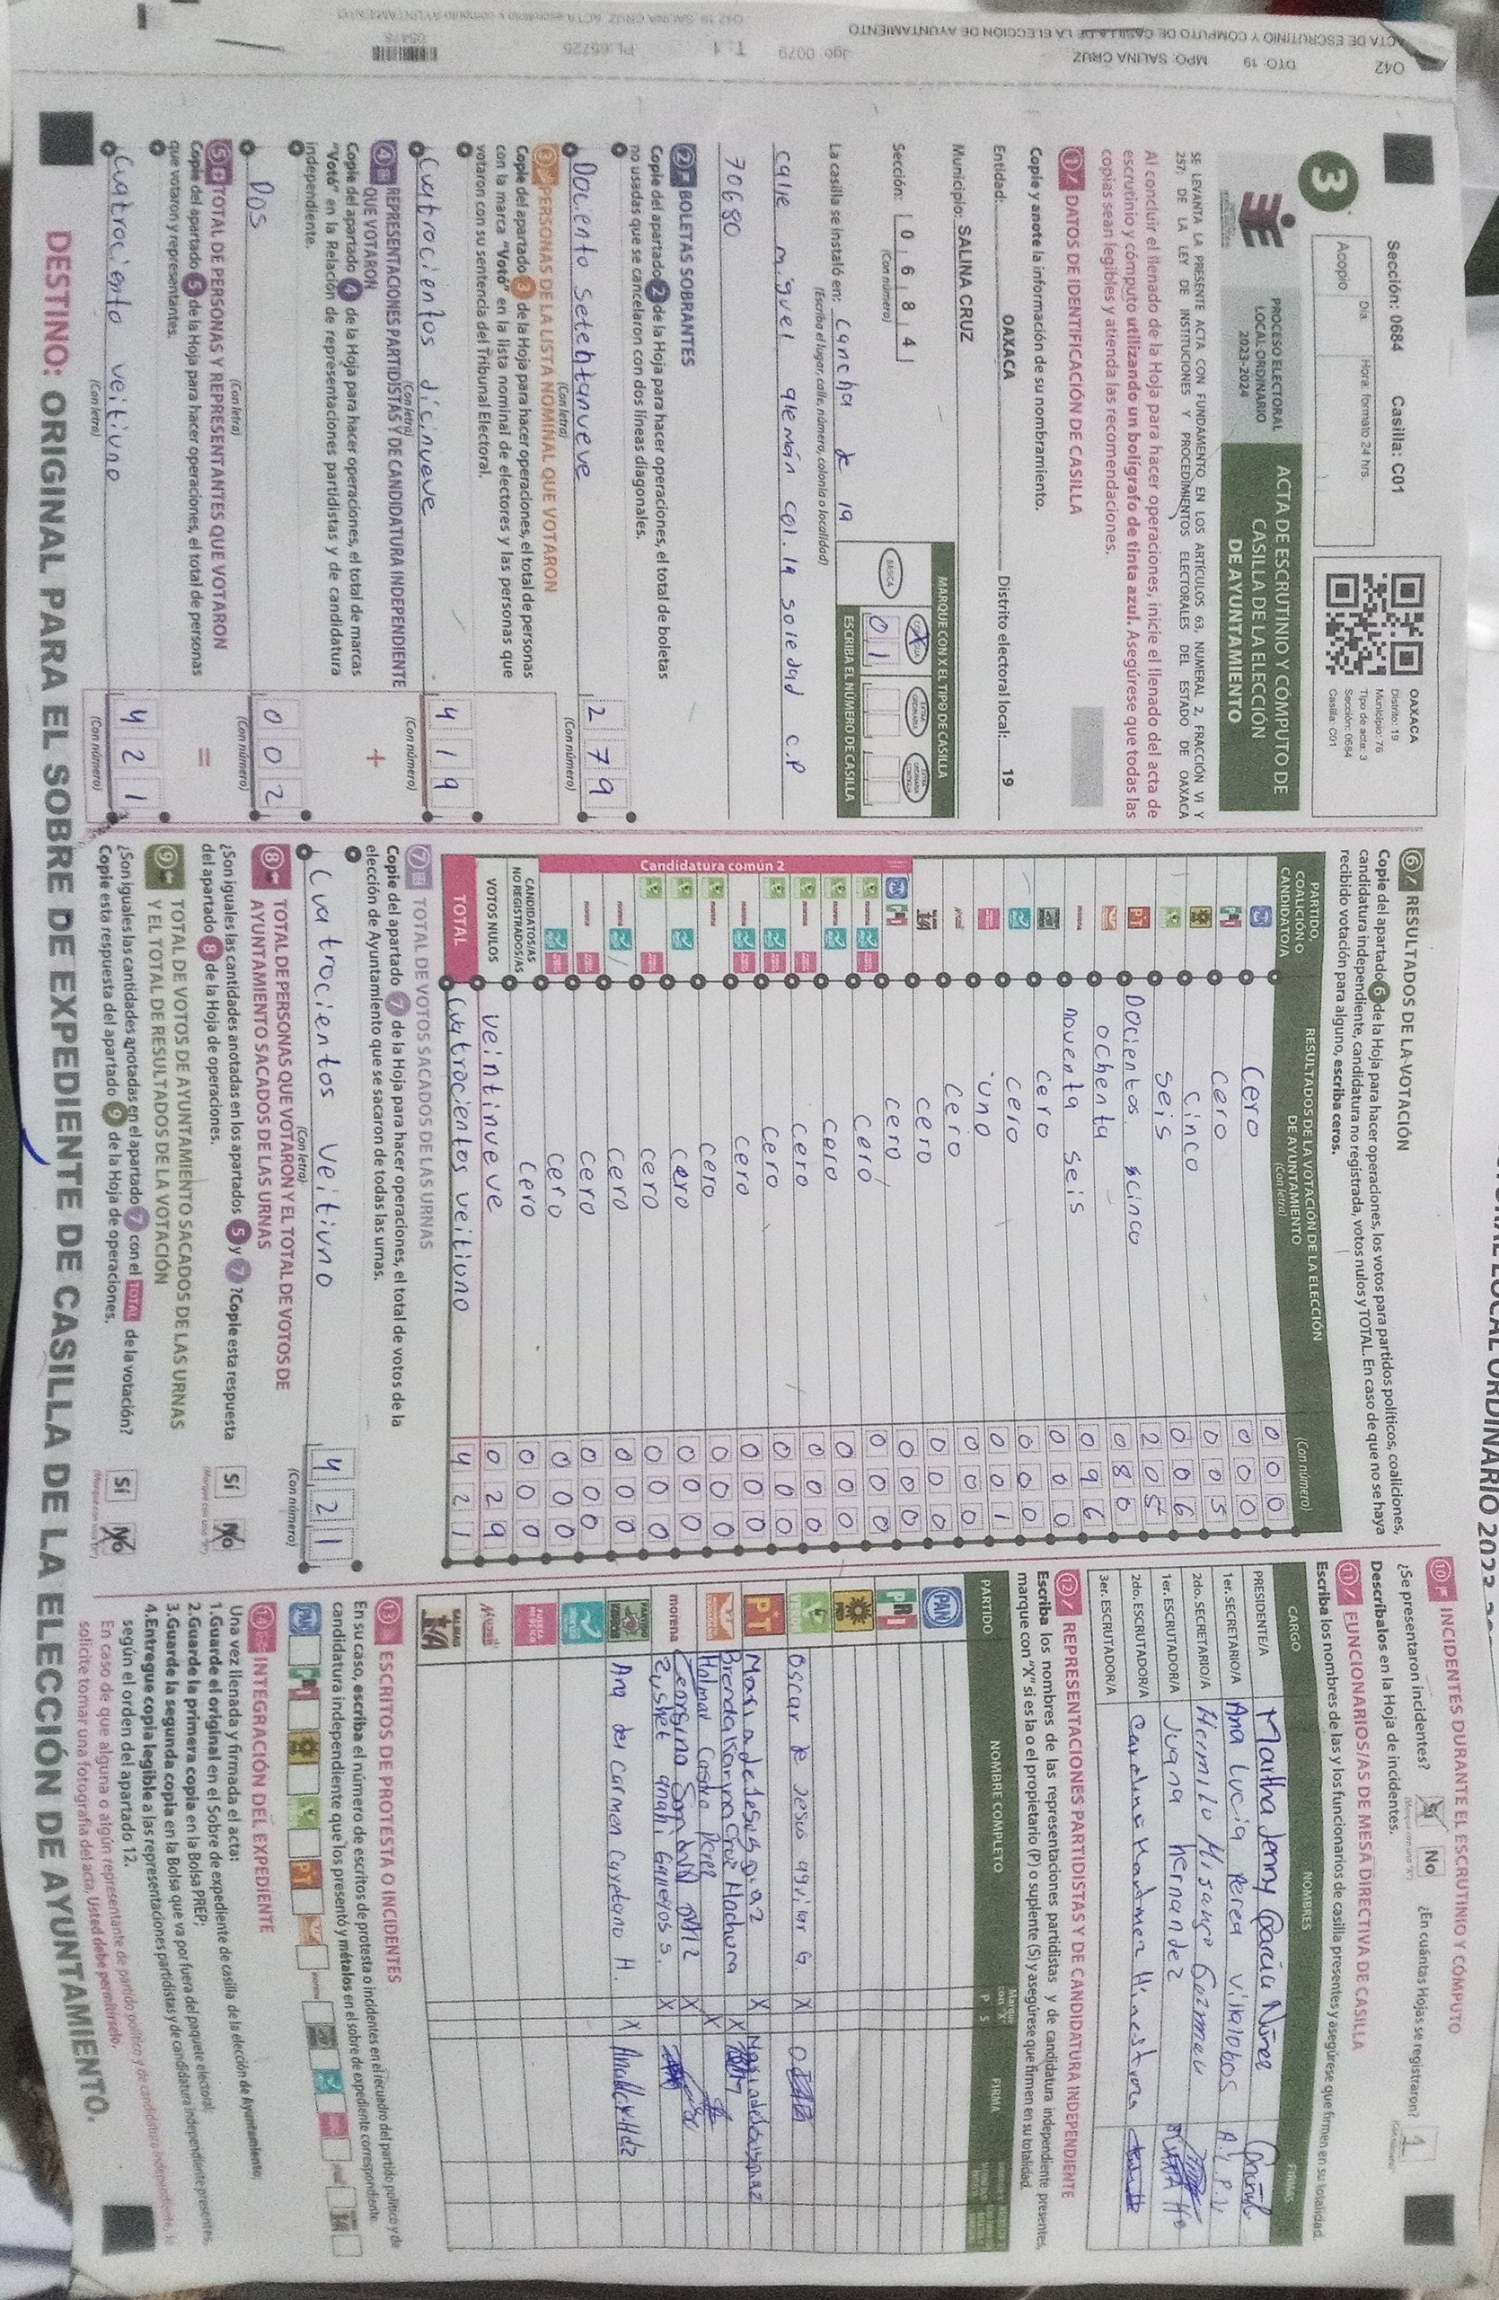 Sección: 0684 Casilla: C01
Día Hora: formato 24 hrs.
Acopio
OAXACA
Distrito: 19
Municipio: 76
Tipo de acta: 3
Sección: 0684
Casilla: C01
3
PROCESO ELECTORAL
LOCAL ORDINARIO
2023-2024
ACTA DE ESCRUTINIO Y CÓMPUTO DE
CASILLA DE LA ELECCIÓN
DE AYUNTAMIENTO
SE LEVANTA LA PRESENTE ACTA CON FUNDAMENTO EN LOS ARTÍCULOS 63, NUMERAL 2, FRACCIÓN VI Y
257; DE LA LEY DE INSTITUCIONES Y PROCEDIMIENTOS ELECTORALES DEL ESTADO DE OAXACA
Al concluir el llenado de la Hoja para hacer operaciones, inicie el llenado del acta de
escrutinio y cómputo utilizando un bolígrafo de tinta azul. Asegúrese que todas las
copias sean legibles y atienda las recomendaciones.
1 DATOS DE IDENTIFICACIÓN DE CASILLA
Copie y anote la información de su nombramiento.
Entidad: OAXACA Distrito electoral local: 19
Municipio: SALINA CRUZ
Sección: 0 6 8 4
(Con número)
MARQUE CON X EL TIPO DE CASILLA
BÁSICA
0 1
ESCRIBA EL NÚMERO DE CASILLA
La casilla se instaló en: cancha de la
(Escriba el lugar, calle, número, colonia o localidad)
calle miguel aleman col. la soledad c.p
70680
2 BOLETAS SOBRANTES
Copie del apartado 2 de la Hoja para hacer operaciones, el total de boletas
no usadas que se cancelaron con dos líneas diagonales.
Dociento setehtanueve 2 7 9
(Con letra) (Con número)
3 PERSONAS DE LA LISTA NOMINAL QUE VOTARON
Copie del apartado 3 de la Hoja para hacer operaciones, el total de personas
con la marca "Votó" en la lista nominal de electores y las personas que
votaron con su sentencia del Tribunal Electoral.
Cuatrocientos dicinueve 4 1 9
(Con letra) (Con número)
4 REPRESENTACIONES PARTIDISTAS Y DE CANDIDATURA INDEPENDIENTE
QUE VOTARON
Copie del apartado 4 de la Hoja para hacer operaciones, el total de marcas
"Votó" en la Relación de representaciones partidistas y de candidatura
independiente.
+
Dos 0 0 2
(Con letra) (Con número)
5 TOTAL DE PERSONAS Y REPRESENTANTES QUE VOTARON
Copie del apartado 5 de la Hoja para hacer operaciones, el total de personas
que votaron y representantes.
=
cuatrociento veitiuno 4 2 1
(Con letra) (Con número)
6 RESULTADOS DE LA VOTACIÓN
Copie del apartado 6 de la Hoja para hacer operaciones, los votos para partidos políticos, coaliciones,
candidatura independiente, candidatura no registrada, votos nulos y TOTAL. En caso de que no se haya
recibido votación para alguno, escriba ceros.
PARTIDO, COALICIÓN O CANDIDATO/A
RESULTADOS DE LA VOTACIÓN DE LA ELECCIÓN DE AYUNTAMIENTO
(Con letra) (Con número)
cero 0 0 0
cero 0 0 0
cinco 0 0 5
seis 0 0 6
Docientos cinco 2 0 5
ochenta 0 8 0
noventa seis 0 9 6
cero 0 0 0
cero 0 0 0
uno 0 0 1
cero 0 0 0
cero 0 0 0
cero 0 0 0
cero 0 0 0
cero 0 0 0
cero 0 0 0
cero 0 0 0
cero 0 0 0
cero 0 0 0
cero 0 0 0
cero 0 0 0
cero 0 0 0
cero 0 0 0
cero 0 0 0
Candidatura común 2
CANDIDATOS/AS NO REGISTRADOS/AS cero 0 0 0
VOTOS NULOS veintinueve 0 2 9
TOTAL Cuatrocientos veitiuno 4 2 1
7 TOTAL DE VOTOS SACADOS DE LAS URNAS
Copie del apartado 7 de la Hoja para hacer operaciones, el total de votos de la
elección de Ayuntamiento que se sacaron de todas las urnas.
Cuatrocientos veitiuno 4 2 1
(Con letra) (Con número)
8 TOTAL DE PERSONAS QUE VOTARON Y EL TOTAL DE VOTOS DE
AYUNTAMIENTO SACADOS DE LAS URNAS
¿Son iguales las cantidades anotadas en los apartados 5 y 7 ?Copie esta respuesta
del apartado 8 de la Hoja de operaciones.
Sí No
9 TOTAL DE VOTOS DE AYUNTAMIENTO SACADOS DE LAS URNAS
Y EL TOTAL DE RESULTADOS DE LA VOTACIÓN
¿Son iguales las cantidades anotadas en el apartado 7 con el TOTAL de la votación?
Copie esta respuesta del apartado 9 de la Hoja de operaciones.
Sí No
10 INCIDENTES DURANTE EL ESCRUTINIO Y CÓMPUTO
¿Se presentaron incidentes? Sí No ¿En cuántas Hojas se registraron? 1
Descríbalos en la Hoja de incidentes.
11 FUNCIONARIOS/AS DE MESA DIRECTIVA DE CASILLA
Escriba los nombres de las y los funcionarios de casilla presentes y asegúrese que firmen en su totalidad.
CARGO NOMBRES FIRMAS
PRESIDENTE/A Martha Jenny García Núñez
1er. SECRETARIO/A Ana Lucia Perea Villalobos A.L.P.V
2do. SECRETARIO/A Hermilo
1er. ESCRUTADOR/A Juana hernandez
2do. ESCRUTADOR/A Carolina
3er. ESCRUTADOR/A
12 REPRESENTACIONES PARTIDISTAS Y DE CANDIDATURA INDEPENDIENTE
Escriba los nombres de las representaciones partidistas y de candidatura independiente presentes,
marque con "X" si es la o el propietario (P) o suplente (S) y asegúrese que firmen en su totalidad.
PARTIDO NOMBRE COMPLETO P S FIRMA
PAN
PRI
PRD
VERDE oscar de Jesus aguilar G. X
PT Maria de Jesus Diaz X
Brenda Karyna Cruz Machuca X
Holmar Castro Perez X
morena Georgina X
Zushet anahi Gallegos S. X
Ana del Carmen Cayetano H. X
13 ESCRITOS DE PROTESTA O INCIDENTES
En su caso, escriba el número de escritos de protesta o incidentes en el recuadro del partido político y de
candidatura independiente que los presentó y métalos en el sobre de expediente correspondiente.
14 INTEGRACIÓN DEL EXPEDIENTE
Una vez llenada y firmada el acta:
1.Guarde el original en el Sobre de expediente de casilla de la elección de Ayuntamiento;
2.Guarde la primera copia en la Bolsa PREP;
3.Guarde la segunda copia en la Bolsa que va por fuera del paquete electoral;
4.Entregue copia legible a las representaciones partidistas y de candidatura independiente presentes,
según el orden del apartado 12.
En caso de que alguna o algún representante de partido político y de candidatura independiente, le
solicite tomar una fotografía del acta, Usted debe permitírselo.
DESTINO: ORIGINAL PARA EL SOBRE DE EXPEDIENTE DE CASILLA DE LA ELECCIÓN DE AYUNTAMIENTO.
042 DTO: 19 MPO: SALINA CRUZ
ACTA DE ESCRUTINIO Y CÓMPUTO DE CASILLA DE LA ELECCIÓN DE AYUNTAMIENTO
Jgo: 0079 T: 1 PL:65725